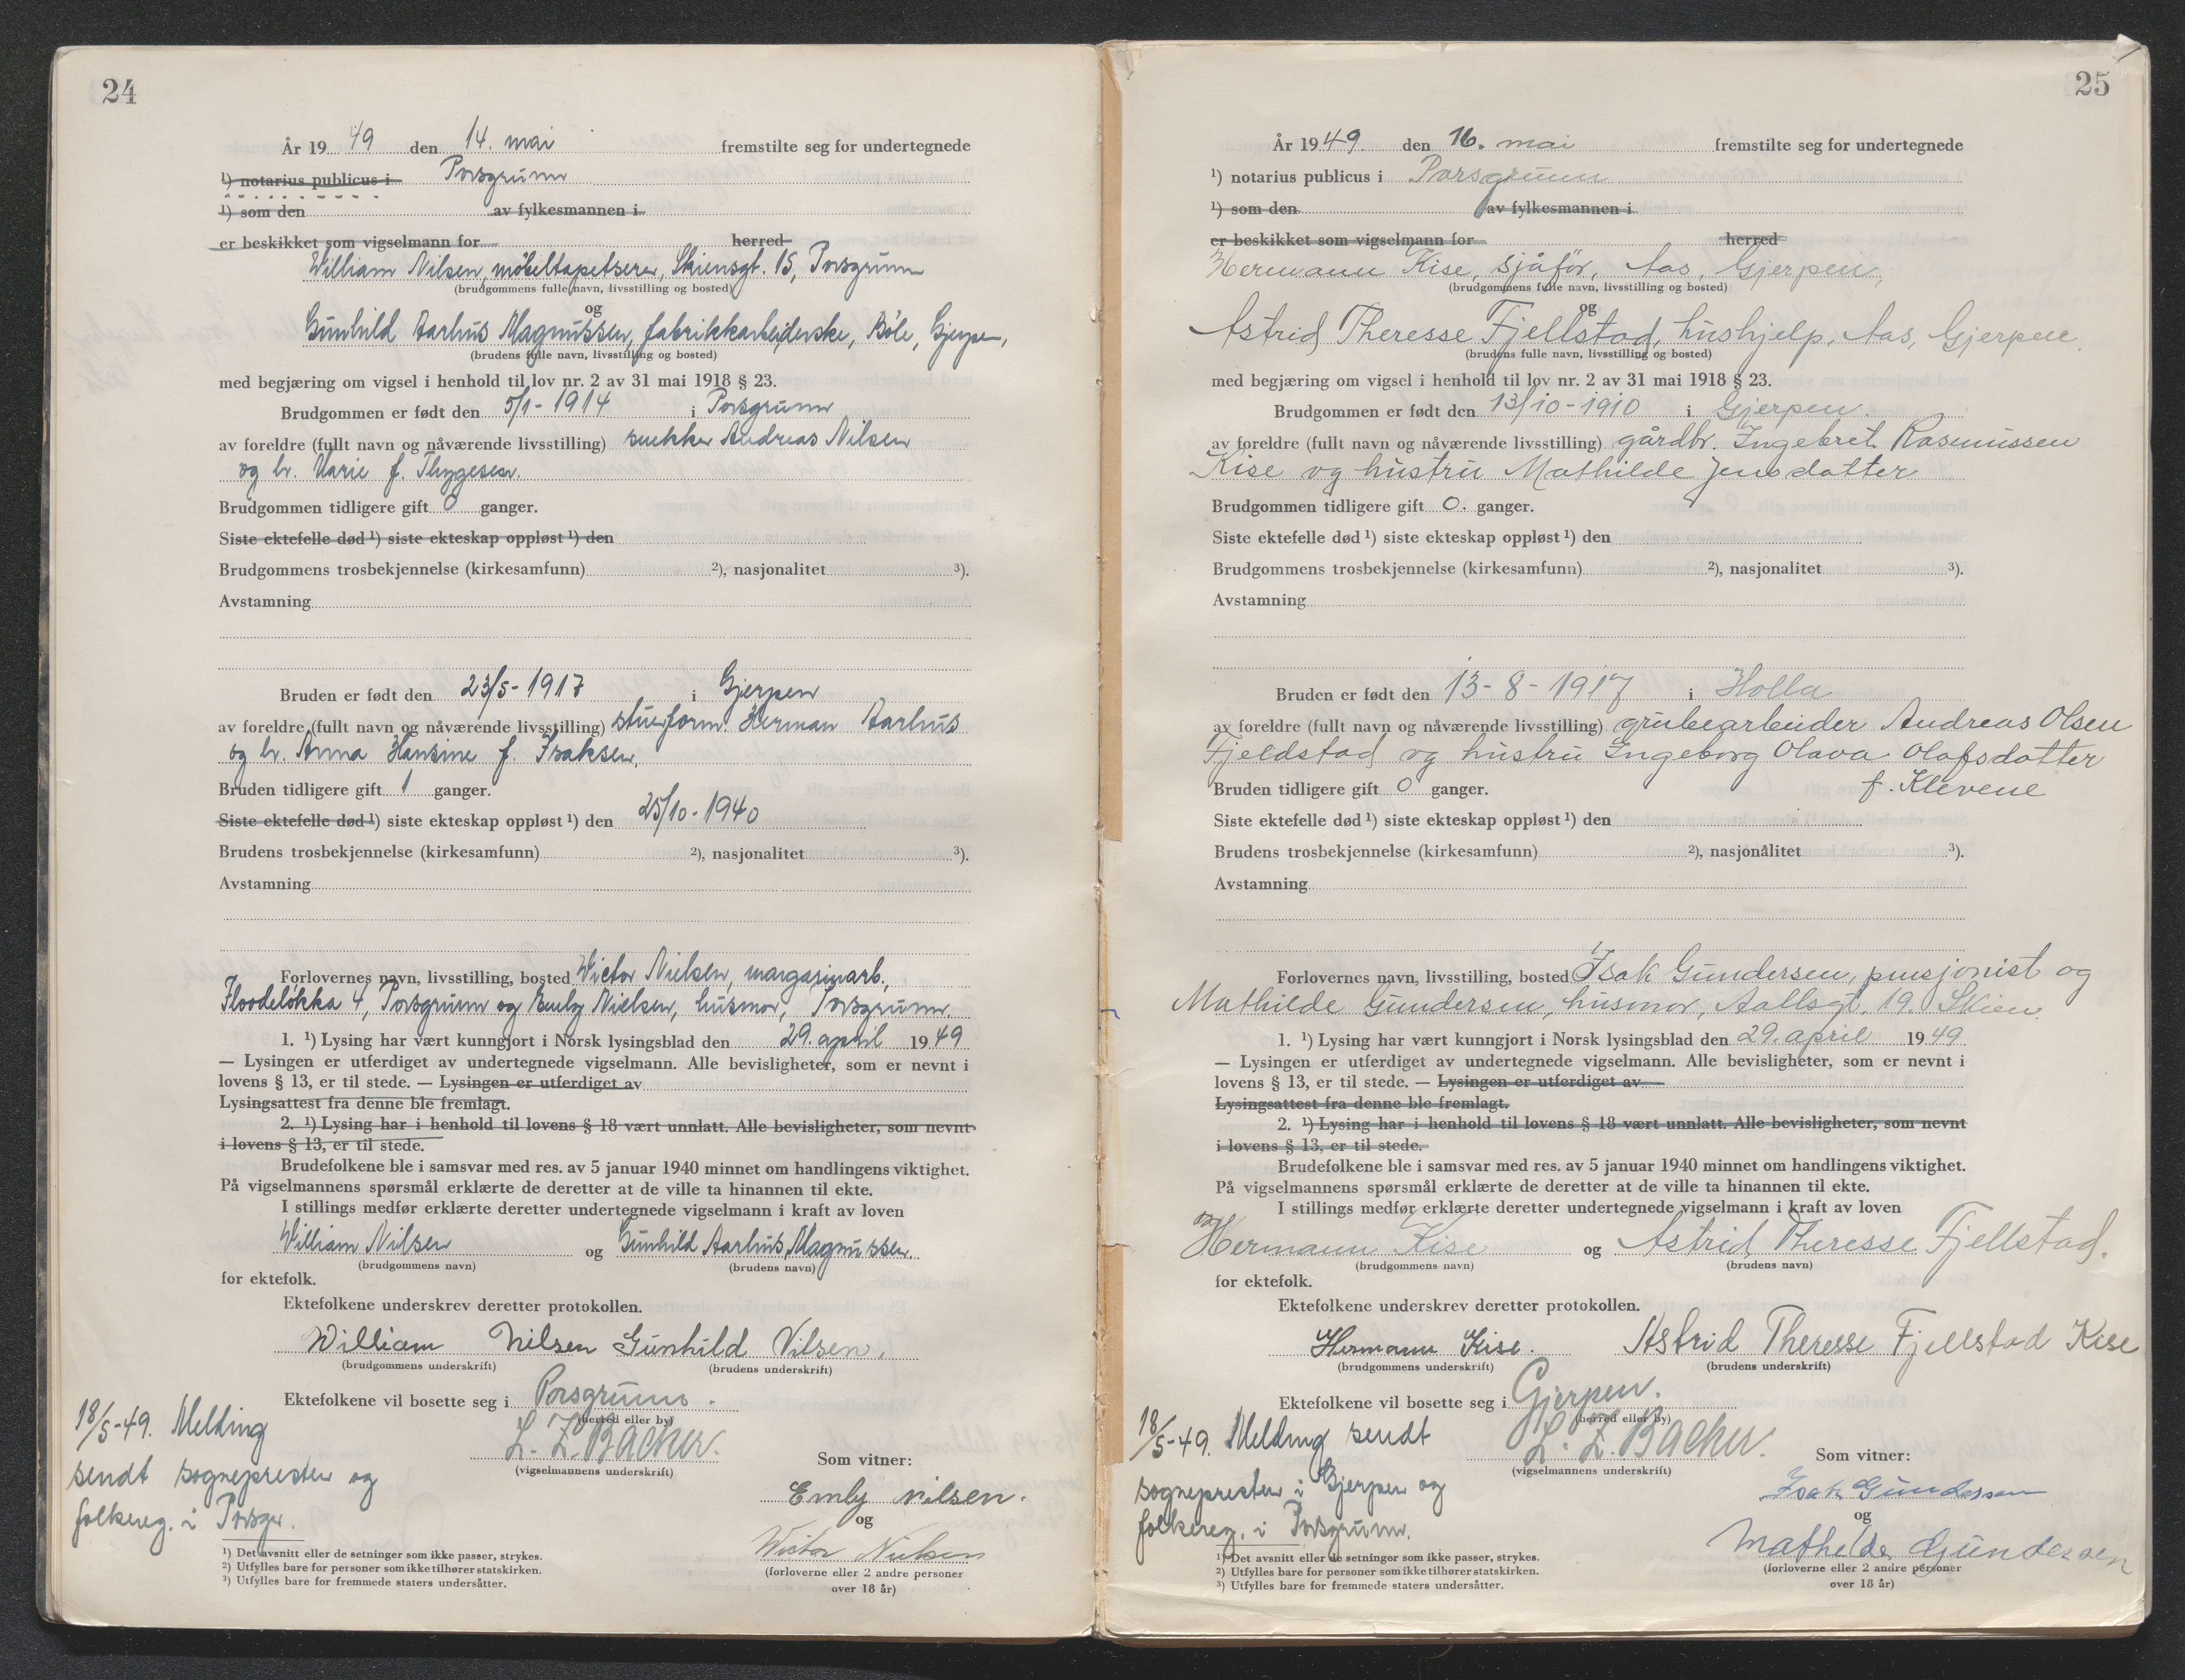 24
År 19 49 den 14. mai fremstilte seg for undertegnede
¹) notarius publicus i Porsgrunn
¹) som den av fylkesmannen i
er beskikket som vigselmann for herred
William Nilsen, møbeltapetserer, Skiensgt. 15, Porsgrunn
(brudgommens fulle navn, livsstilling og bosted)
og
Gunhild Aarhus Magnussen, fabrikkarbeiderske, Bøle, Gjerpen,
(brudens fulle navn, livsstilling og bosted)
med begjæring om vigsel i henhold til lov nr. 2 av 31 mai 1918 § 23.
Brudgommen er født den 5/1 - 1914 i Porsgrunn
av foreldre (fullt navn og nåværende livsstilling) snekker Andreas Nilsen
og h. Marie f. Thygesen.
Brudgommen tidligere gift 0 ganger.
Siste ektefelle død ¹) siste ekteskap oppløst ¹) den
Brudgommens trosbekjennelse (kirkesamfunn) ²), nasjonalitet ³).
Avstamning
Bruden er født den 23/5 - 1917 i Gjerpen
av foreldre (fullt navn og nåværende livsstilling) stuerform. Herman Aarhus
og h. Anna Hansine f. Isaksen.
Bruden tidligere gift 1 ganger.
Siste ektefelle død ¹) siste ekteskap oppløst ¹) den 25/10 - 1940
Brudens trosbekjennelse (kirkesamfunn) ²), nasjonalitet ³).
Avstamning
Forlovernes navn, livsstilling, bosted Victor Nielsen, margarinarb.,
Floodeløkka 4, Porsgrunn og Emly Nielsen, husmor, Porsgrunn.
1. ¹) Lysing har vært kunngjort i Norsk lysingsblad den 29. april 19 49
— Lysingen er utferdiget av undertegnede vigselmann. Alle bevisligheter, som er nevnt i
lovens § 13, er til stede. — Lysingen er utferdiget av
Lysingsattest fra denne ble fremlagt.
2. ¹) Lysing har i henhold til lovens § 18 vært unnlatt. Alle bevisligheter, som nevnt
i lovens § 13, er til stede.
Brudefolkene ble i samsvar med res. av 5 januar 1940 minnet om handlingens viktighet.
På vigselmannens spørsmål erklærte de deretter at de ville ta hinannen til ekte.
I stillings medfør erklærte deretter undertegnede vigselmann i kraft av loven
William Nilsen og Gunhild Aarhus Magnussen.
(brudgommens navn) (brudens navn)
for ektefolk.
Ektefolkene underskrev deretter protokollen.
William Nilsen Gunhild Nilsen,
(brudgommens underskrift) (brudens underskrift)
Ektefolkene vil bosette seg i Porsgrunn.
(herred eller by)
L. Z. Backer.
(vigselmannens underskrift)
18/5-49. Melding
sendt sogneprester og
folkereg. i Porsgr.
Som vitner:
Emly Nilsen.
og
Victor Nielsen
(forloverne eller 2 andre personer
over 18 år)
¹) Det avsnitt eller de setninger som ikke passer, strykes.
²) Utfylles bare for personer som ikke tilhører statskirken.
³) Utfylles bare for fremmede staters undersåtter.
25
År 19 49. den 16. mai fremstilte seg for undertegnede
¹) notarius publicus i Porsgrunn
¹) som den av fylkesmannen i
er beskikket som vigselmann for herred
Hermann Kise, sjåfør, Aas, Gjerpen,
(brudgommens fulle navn, livsstilling og bosted)
og
Astrid Theresse Fjellstad, hushjelp, Aas, Gjerpen.
(brudens fulle navn, livsstilling og bosted)
med begjæring om vigsel i henhold til lov nr. 2 av 31 mai 1918 § 23.
Brudgommen er født den 13/10 - 1910 i Gjerpen.
av foreldre (fullt navn og nåværende livsstilling) gårdbr. Ingebret Rasmussen
Kise og hustru Mathilde Jensdatter
Brudgommen tidligere gift 0. ganger.
Siste ektefelle død ¹) siste ekteskap oppløst ¹) den
Brudgommens trosbekjennelse (kirkesamfunn) ²), nasjonalitet ³).
Avstamning
Bruden er født den 13 - 8 - 1917 i Holla
av foreldre (fullt navn og nåværende livsstilling) grubearbeider Andreas Olsen
Fjeldstad og hustru Ingeborg Olava Olafsdatter
f. Klevene
Bruden tidligere gift 0 ganger.
Siste ektefelle død ¹) siste ekteskap oppløst ¹) den
Brudens trosbekjennelse (kirkesamfunn) ²), nasjonalitet ³).
Avstamning
Forlovernes navn, livsstilling, bosted Isak Gundersen, pensjonist og
Mathilde Gundersen, husmor, Aallsgt. 19. Skien.
1. ¹) Lysing har vært kunngjort i Norsk lysingsblad den 29. april 19 49
— Lysingen er utferdiget av undertegnede vigselmann. Alle bevisligheter, som er nevnt i
lovens § 13, er til stede. — Lysingen er utferdiget av
Lysingsattest fra denne ble fremlagt.
2. ¹) Lysing har i henhold til lovens § 18 vært unnlatt. Alle bevisligheter, som nevnt
i lovens § 13, er til stede.
Brudefolkene ble i samsvar med res. av 5 januar 1940 minnet om handlingens viktighet.
På vigselmannens spørsmål erklærte de deretter at de ville ta hinannen til ekte.
I stillings medfør erklærte deretter undertegnede vigselmann i kraft av loven
Hermann Kise og Astrid Theresse Fjellstad.
(brudgommens navn) (brudens navn)
for ektefolk.
Ektefolkene underskrev deretter protokollen.
Hermann Kise. Astrid Theresse Fjellstad Kise
(brudgommens underskrift) (brudens underskrift)
Ektefolkene vil bosette seg i Gjerpen.
(herred eller by)
L. Z. Backer.
(vigselmannens underskrift)
18/5-49. Melding sendt
sogneprester i Gjerpen og
folkereg. i Porsgrunn.
Som vitner:
Isak Gundersen
og
Mathilde Gundersen
(forloverne eller 2 andre personer
over 18 år)
¹) Det avsnitt eller de setninger som ikke passer, strykes.
²) Utfylles bare for personer som ikke tilhører statskirken.
³) Utfylles bare for fremmede staters undersåtter.